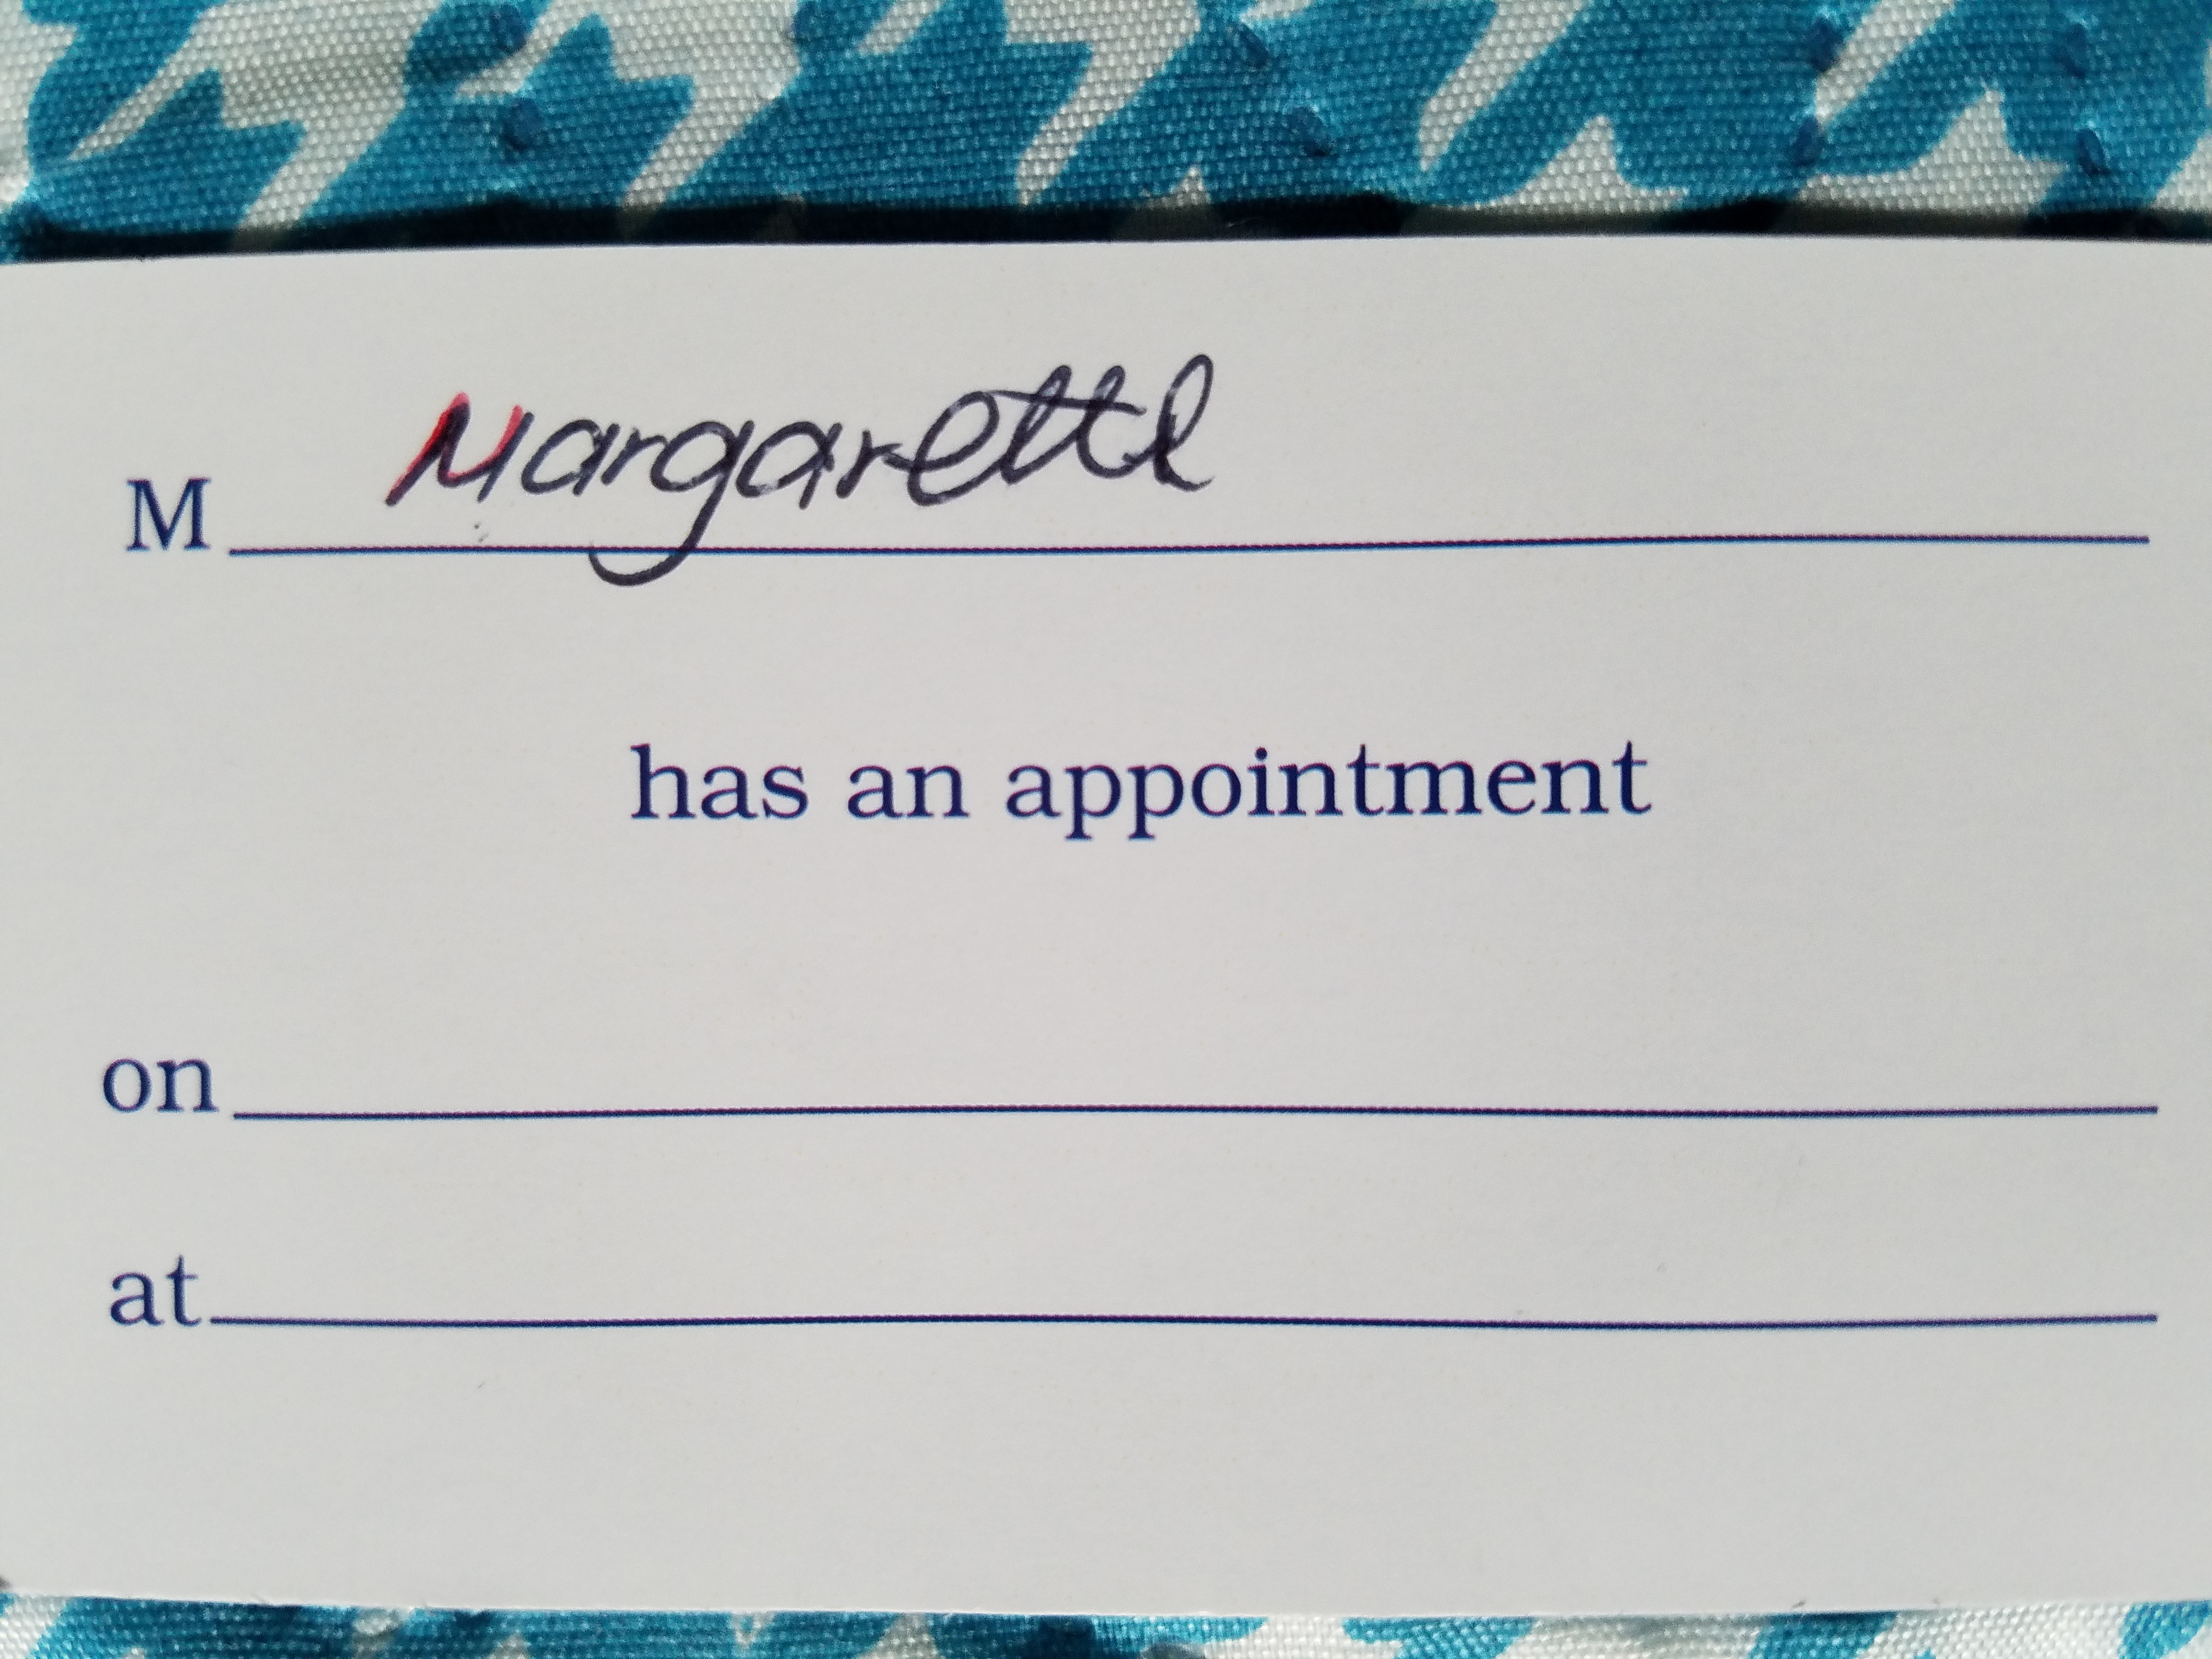 M Margarette
has an appointment
on
at